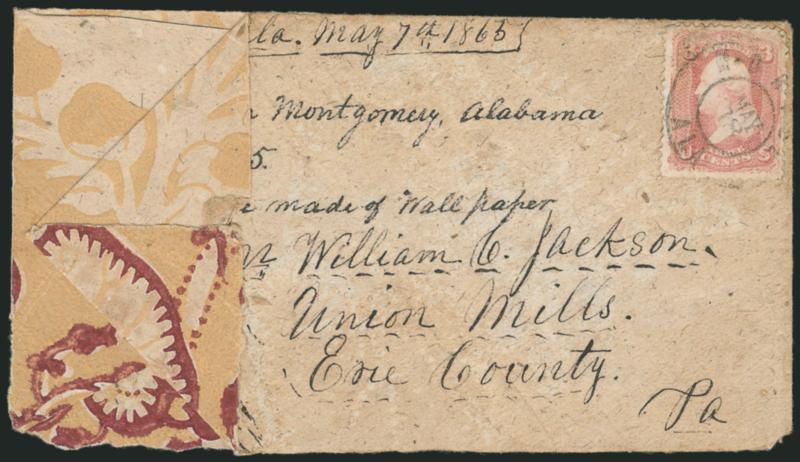 la. May 7th 1865
Montgomery, Alabama
5.
made of Wall paper
William C. Jackson.
Union Mills.
Erie County.
Pa
3
CENTS
MAY
AL